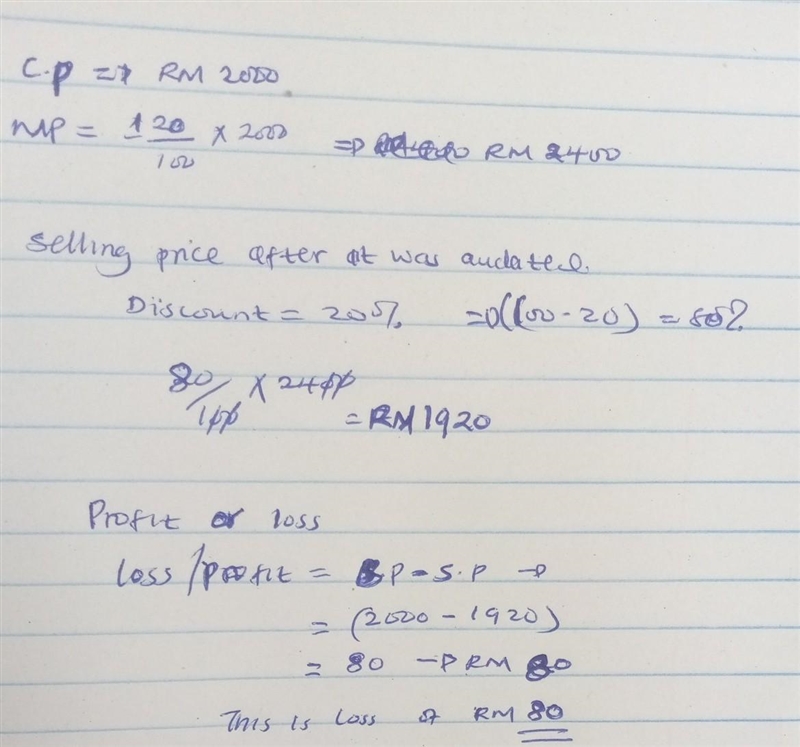 C.P => RM 2000
MP = 120/100 × 2000 => RM 2400
Selling price after it was audated.
Discount = 20% => (100 - 20) = 80%
80/100 × 2400
= RM 1920
Profit or loss
loss/profit = P - S.P →
= (2000 - 1920)
= 80 → RM 80
This is loss of RM 80